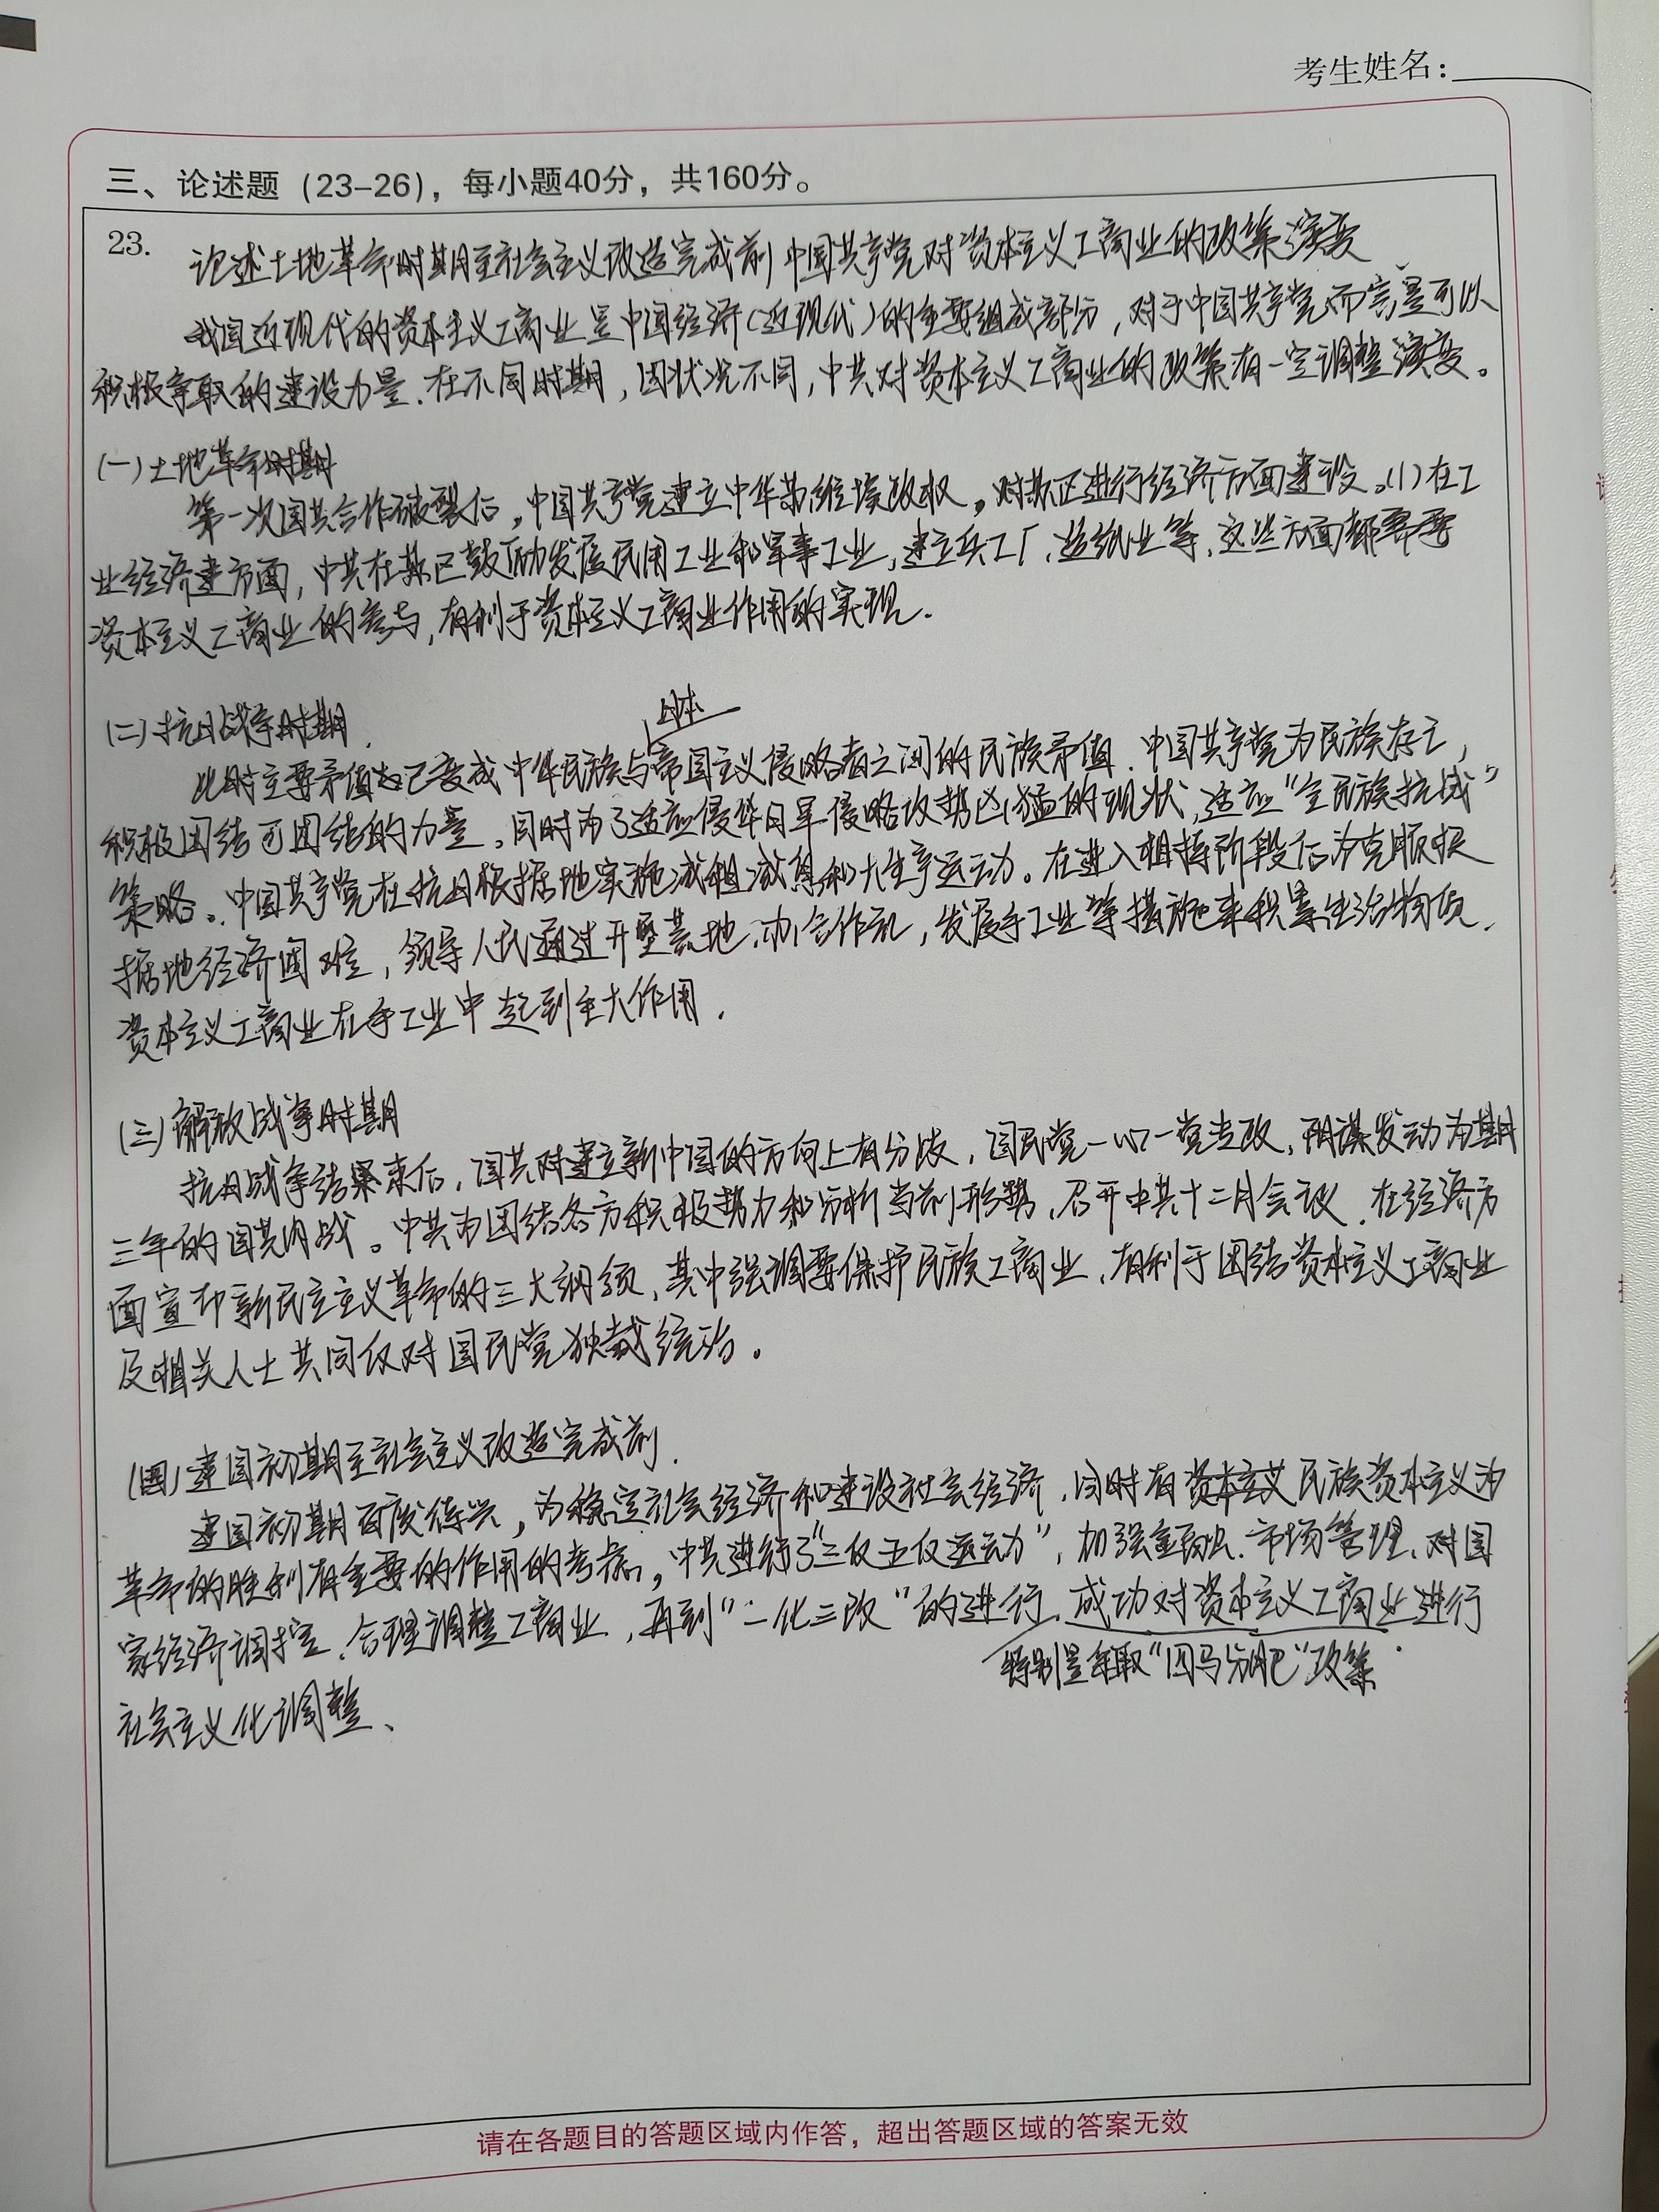 考生姓名：
三、论述题（23-26），每小题40分，共160分。
23. 论述土地革命时期至社会主义改造完成前中国共产党对资本主义工商业的政策演变
我国近现代的资本主义工商业是中国经济（近现代）的重要组成部分，对于中国共产党而言是可以
积极争取的建设力量．在不同时期，因状况不同，中共对资本主义工商业的政策有一定调整演变。
（一）土地革命时期
第一次国共合作破裂后，中国共产党建立中华苏维埃政权，对苏区进行经济方面建设。（1）在工
业经济建方面，中共在苏区鼓励发展民用工业和军事工业，建立兵工厂、造纸业等，这些方面都需要
资本主义工商业的参与，有利于资本主义工商业作用的实现．
（二）抗日战争时期
日本
此时主要矛盾已变成中华民族与帝国主义侵略者之间的民族矛盾．中国共产党为民族存亡，
积极团结可团结的力量。同时为了适应侵华日军侵略攻势凶猛的现状，适应“全民族抗战”
策略。中国共产党在抗日根据地实施减租减息和大生产运动。在进入相持阶段后为克服根
据地经济困难，领导人民通过开垦荒地、办合作社，发展手工业等措施来积累生活物质．
资本主义工商业在手工业中起到重大作用．
（三）解放战争时期
抗日战争结束后，国共对建立新中国的方向上有分歧，国民党一心一党专政，阴谋发动为期
三年的国共内战。中共为团结各方积极势力和分析当前形势，召开中共十二月会议．在经济方
面宣布新民主主义革命的三大纲领，其中强调要保护民族工商业，有利于团结资本主义工商业
及相关人士共同反对国民党独裁统治。
（四）建国初期至社会主义改造完成前．
建国初期百废待兴，为稳定社会经济和建设社会经济．同时有资本主义民族资本主义为
革命的胜利有重要的作用的考虑，中共进行了“三反五反运动”，加强金融、市场管理、对国
家经济调控、合理调整工商业，再到“一化三改”的进行．成功对资本主义工商业进行
特别是采取“四马分肥”政策
社会主义化调整、
请在各题目的答题区域内作答，超出答题区域的答案无效